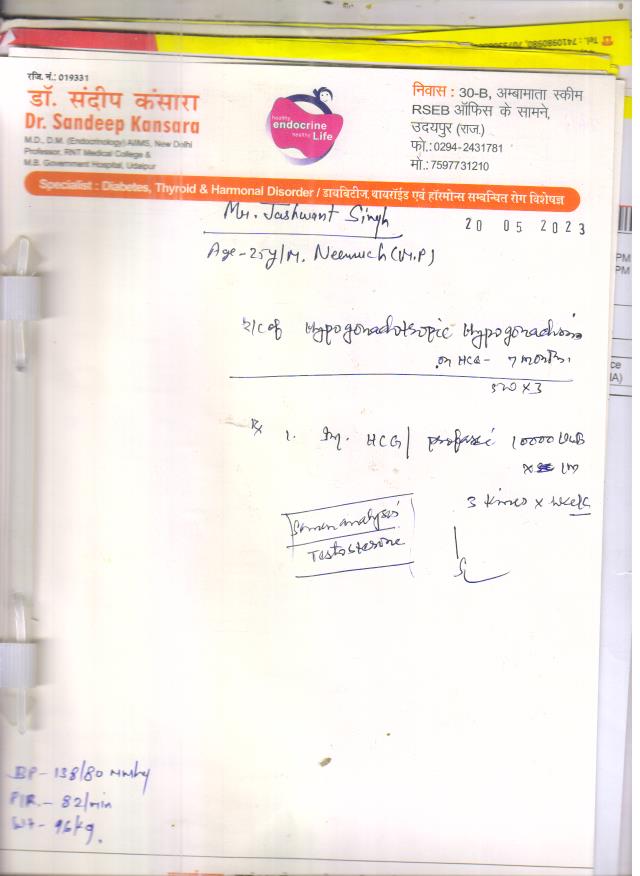 Tel.: 7410980980,
रजि. नं.: 019331
डॉ. संदीप कंसारा
Dr. Sandeep Kansara
M.D., D.M. (Endocrinology) AIIMS, New Delhi
Professor, RNT Medical College &
M.B. Government Hospital, Udaipur
healthy
endocrine
healthy Life
निवास : 30-B, अम्बामाता स्कीम
RSEB ऑफिस के सामने,
उदयपुर (राज.)
फो.:0294-2431781
मो.:7597731210
Specialist : Diabetes, Thyroid & Harmonal Disorder / डायबिटीज, थायरॉईड एवं हॉरमोन्स सम्बन्धित रोग विशेषज्ञ
Mr. Jashwant Singh
20 05 2023
Age-25y/M. Neemuch (M.P)
Hypogonadotropic Hypogonadism
on HCG - 7 months.
Rx 1. Inj. HCG/ 10000
3 times x week
Semen analysis
Testosterone
BP- 138/80 mmhg
P/R.- 82/min
Wt- 96kg.
PM
PM
ce
IA)